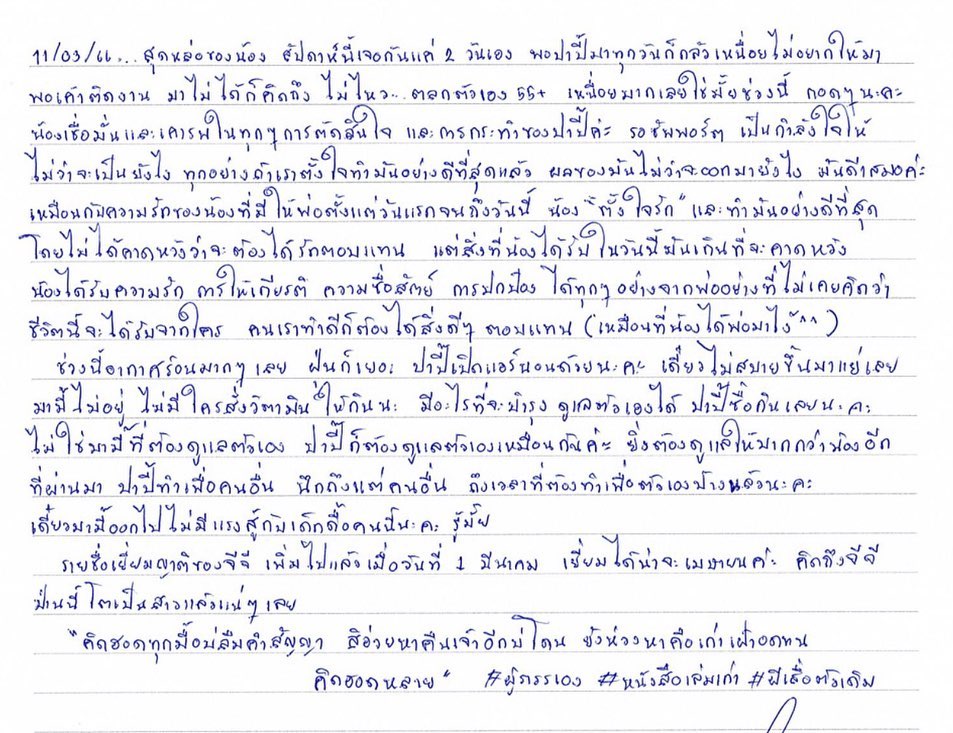 11/03/66... สุดหล่อของน้อง สัปดาห์นี้เจอกันแค่ 2 วันเอง พอปาปี๊มาทุกวันก็กลัวเหนื่อยไม่อยากให้มา
พอเค้าติดงาน มาไม่ได้ก็คิดถึง ไม่ไหว... ตลกตัวเอง 55+ เหนื่อยมากเลยใช่มั้ยช่วงนี้ กอดๆนะคะ
น้องเชื่อมั่นและเคารพในทุกๆการตัดสินใจ และการกระทำของปาปี๊ค่ะ รอซัพพอร์ต เป็นกำลังใจให้
ไม่ว่าจะเป็นยังไง ทุกอย่างถ้าเราตั้งใจทำมันอย่างดีที่สุดแล้ว ผลของมันไม่ว่าจะออกมายังไง มันดีเสมอค่ะ
เหมือนกับความรักของน้องที่มีให้พ่อตั้งแต่วันแรกจนถึงวันนี้ น้อง "ตั้งใจรัก" และทำมันอย่างดีที่สุด
โดยไม่ได้คาดหวังว่าจะต้องได้รักตอบแทน แต่สิ่งที่น้องได้รับในวันนี้มันเกินที่จะคาดหวัง
น้องได้รับความรัก การให้เกียรติ ความซื่อสัตย์ การปกป้อง ได้ทุกๆอย่างจากพ่ออย่างที่ไม่เคยคิดว่า
ชีวิตนี้จะได้รับจากใคร คนเราทำดีก็ต้องได้สิ่งดีๆ ตอบแทน (เหมือนที่น้องได้พ่อมาไง ^^)
ช่วงนี้อากาศร้อนมากๆเลย ฝุ่นก็เยอะ ปาปี๊เปิดแอร์นอนด้วยนะคะ เดี๋ยวไม่สบายขึ้นมาแย่เลย
มามี๊ไม่อยู่ ไม่มีใครสั่งวิตามินให้กินนะ มีอะไรที่จะบำรุง ดูแลตัวเองได้ ปาปี๊ซื้อกินเลยนะคะ
ไม่ใช่มามี๊ที่ต้องดูแลตัวเอง ปาปี๊ก็ต้องดูแลตัวเองเหมือนกันค่ะ ยิ่งต้องดูแลให้มากกว่าน้องอีก
ที่ผ่านมา ปาปี๊ทำเพื่อคนอื่น นึกถึงแต่คนอื่น ถึงเวลาที่ต้องทำเพื่อตัวเองบ้างแล้วนะคะ
เดี๋ยวมามี๊ออกไปไม่มีแรงสู้กับเด็กดื้อคนนี้นะคะ รู้มั้ย
รายชื่อเยี่ยมญาติของจีจี เพิ่มไปแล้วเมื่อวันที่ 1 มีนาคม เยี่ยมได้น่าจะเมษายนค่ะ คิดถึงจีจี
ป่านนี้โตเป็นสาวแล้วแน่ๆเลย
"คิดฮอดทุกมื้อบ่ลืมคำสัญญา สิอ่วยหาคืนเจ้าอีกบ่โดน ยังห่วงหาคือเก่าเฝ้าอดทน
คิดฮอดหลาย" #ผู้ภรรเอง #หนังสือเล่มเก่า #ผีเสื้อตัวเดิม